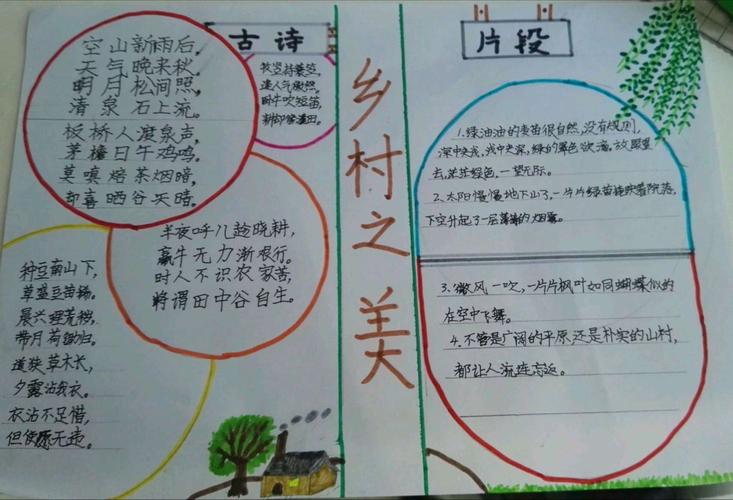 古诗
空山新雨后，
天气晚来秋。
明月松间照，
清泉石上流。
板桥人渡泉声，
茅檐日午鸡鸣。
莫嗔焙茶烟暗，
却喜晒谷天晴。
牧竖持蓑笠，
逢人气傲然。
卧牛吹短笛，
耕却傍溪田。
半夜呼儿趁晓耕，
羸牛无力渐艰行。
时人不识农家苦，
将谓田中谷自生。
种豆南山下，
草盛豆苗稀。
晨兴理荒秽，
带月荷锄归。
道狭草木长，
夕露沾我衣。
衣沾不足惜，
但使愿无违。
乡村之美
片段
1.绿油油的麦苗很自然，没有规则，
深中夹浅，浅中夹深，绿的翠色欲滴，放眼望
去，茫茫绿色，一望无际。
2.太阳慢慢地下山了，一片片绿苗掩映着院落，
下空升起了一层薄薄的烟雾。
3.微风一吹，一片片枫叶如同蝴蝶似的
在空中飞舞。
4.不管是广阔的平原还是朴实的山村，
都让人流连忘返。